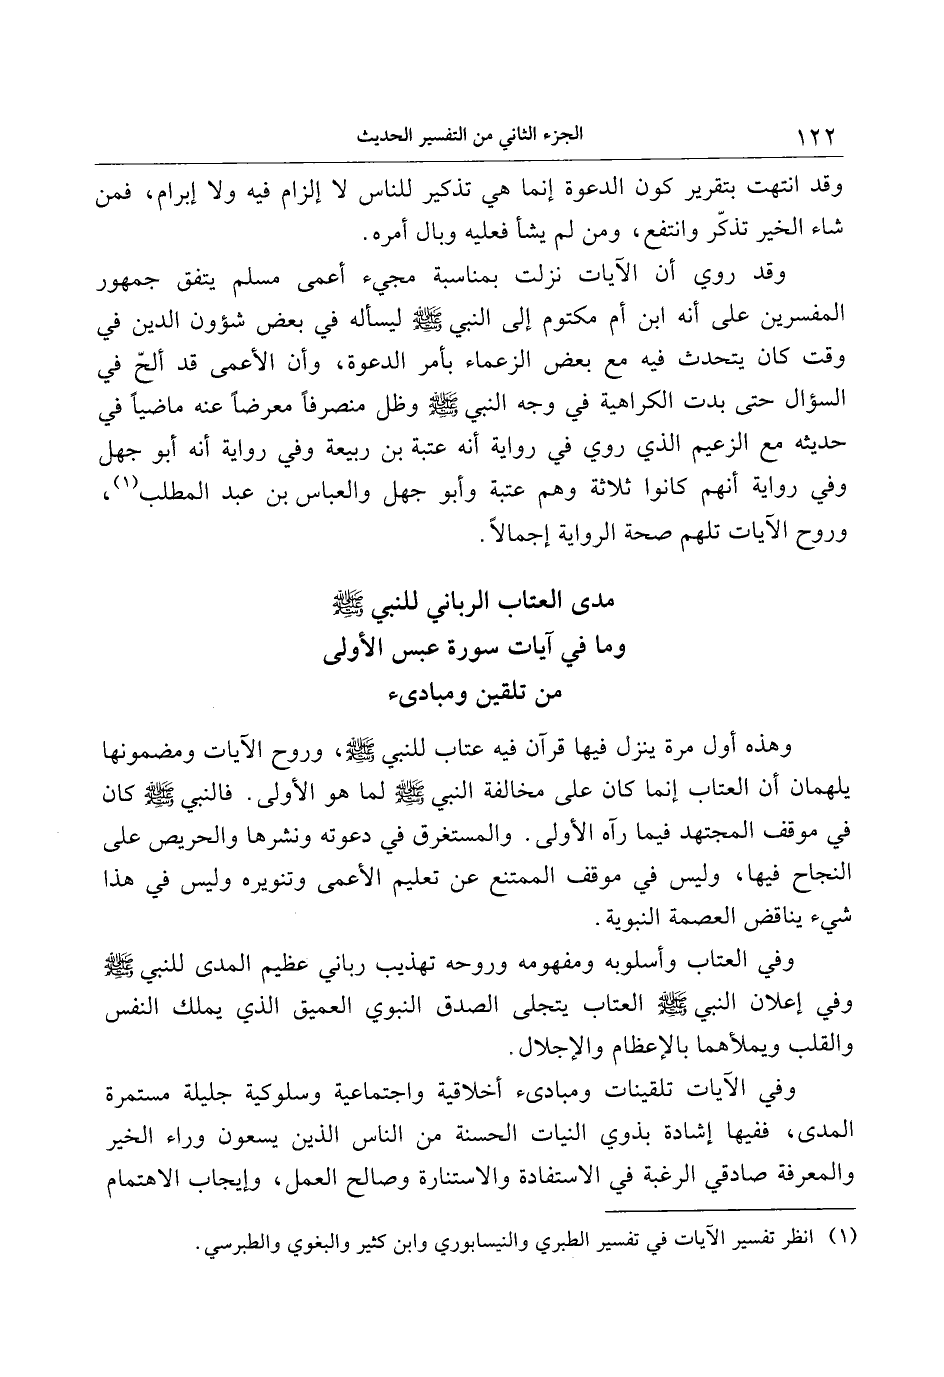 ١٢٢ الجزء الثاني من التفسير الحديث
وقد انتهت بتقرير كون الدعوة إنما هي تذكير للناس لا إلزام فيه ولا إبرام، فمن
شاء الخير تذكّر وانتفع، ومن لم يشأ فعليه وبال أمره.
وقد روي أن الآيات نزلت بمناسبة مجيء أعمى مسلم يتفق جمهور
المفسرين على أنه ابن أم مكتوم إلى النبي ﷺ ليسأله في بعض شؤون الدين في
وقت كان يتحدث فيه مع بعض الزعماء بأمر الدعوة، وأن الأعمى قد ألحّ في
السؤال حتى بدت الكراهية في وجه النبي ﷺ وظل منصرفاً معرضاً عنه ماضياً في
حديثه مع الزعيم الذي روي في رواية أنه عتبة بن ربيعة وفي رواية أنه أبو جهل
وفي رواية أنهم كانوا ثلاثة وهم عتبة وأبو جهل والعباس بن عبد المطلب(١)،
وروح الآيات تلهم صحة الرواية إجمالاً.
مدى العتاب الرباني للنبي ﷺ
وما في آيات سورة عبس الأولى
من تلقين ومبادىء
وهذه أول مرة ينزل فيها قرآن فيه عتاب للنبي ﷺ، وروح الآيات ومضمونها
يلهمان أن العتاب إنما كان على مخالفة النبي ﷺ لما هو الأولى. فالنبي ﷺ كان
في موقف المجتهد فيما رآه الأولى. والمستغرق في دعوته ونشرها والحريص على
النجاح فيها، وليس في موقف الممتنع عن تعليم الأعمى وتنويره وليس في هذا
شيء يناقض العصمة النبوية.
وفي العتاب وأسلوبه ومفهومه وروحه تهذيب رباني عظيم المدى للنبي ﷺ
وفي إعلان النبي ﷺ العتاب يتجلى الصدق النبوي العميق الذي يملك النفس
والقلب ويملأهما بالإعظام والإجلال.
وفي الآيات تلقينات ومبادىء أخلاقية واجتماعية وسلوكية جليلة مستمرة
المدى، ففيها إشادة بذوي النيات الحسنة من الناس الذين يسعون وراء الخير
والمعرفة صادقي الرغبة في الاستفادة والاستنارة وصالح العمل، وإيجاب الاهتمام
(١) انظر تفسير الآيات في تفسير الطبري والنيسابوري وابن كثير والبغوي والطبرسي.